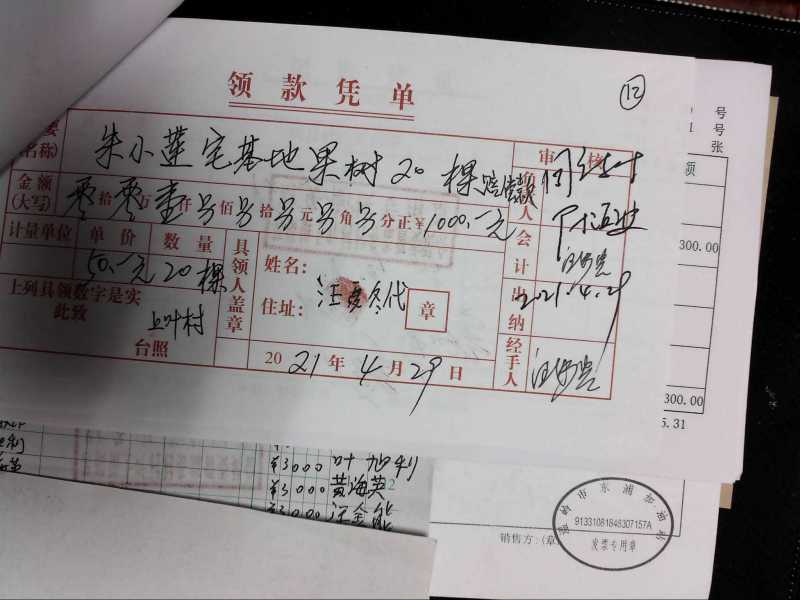 领款凭单
⑫
朱小莲宅基地果树20棵赔偿款
审核
金额(大写) 零拾零万壹仟另佰另拾另元另角另分正¥1000.一元
领款人
会计
计量单位 单价 数量
具领人盖章
姓名:
50.一元 20棵
住址:
汪 冬代
章
出纳
2021.4.29
上列具领数字是实
此致
上叶村
台照
2021年4月29日
经手人
号
号
张
额
300.00
300.00
5.31
¥3000 叶旭利
¥3000 黄海英
汪金能
温岭市东浦加油站
91331081848307157A
发票专用章
销售方:(章)